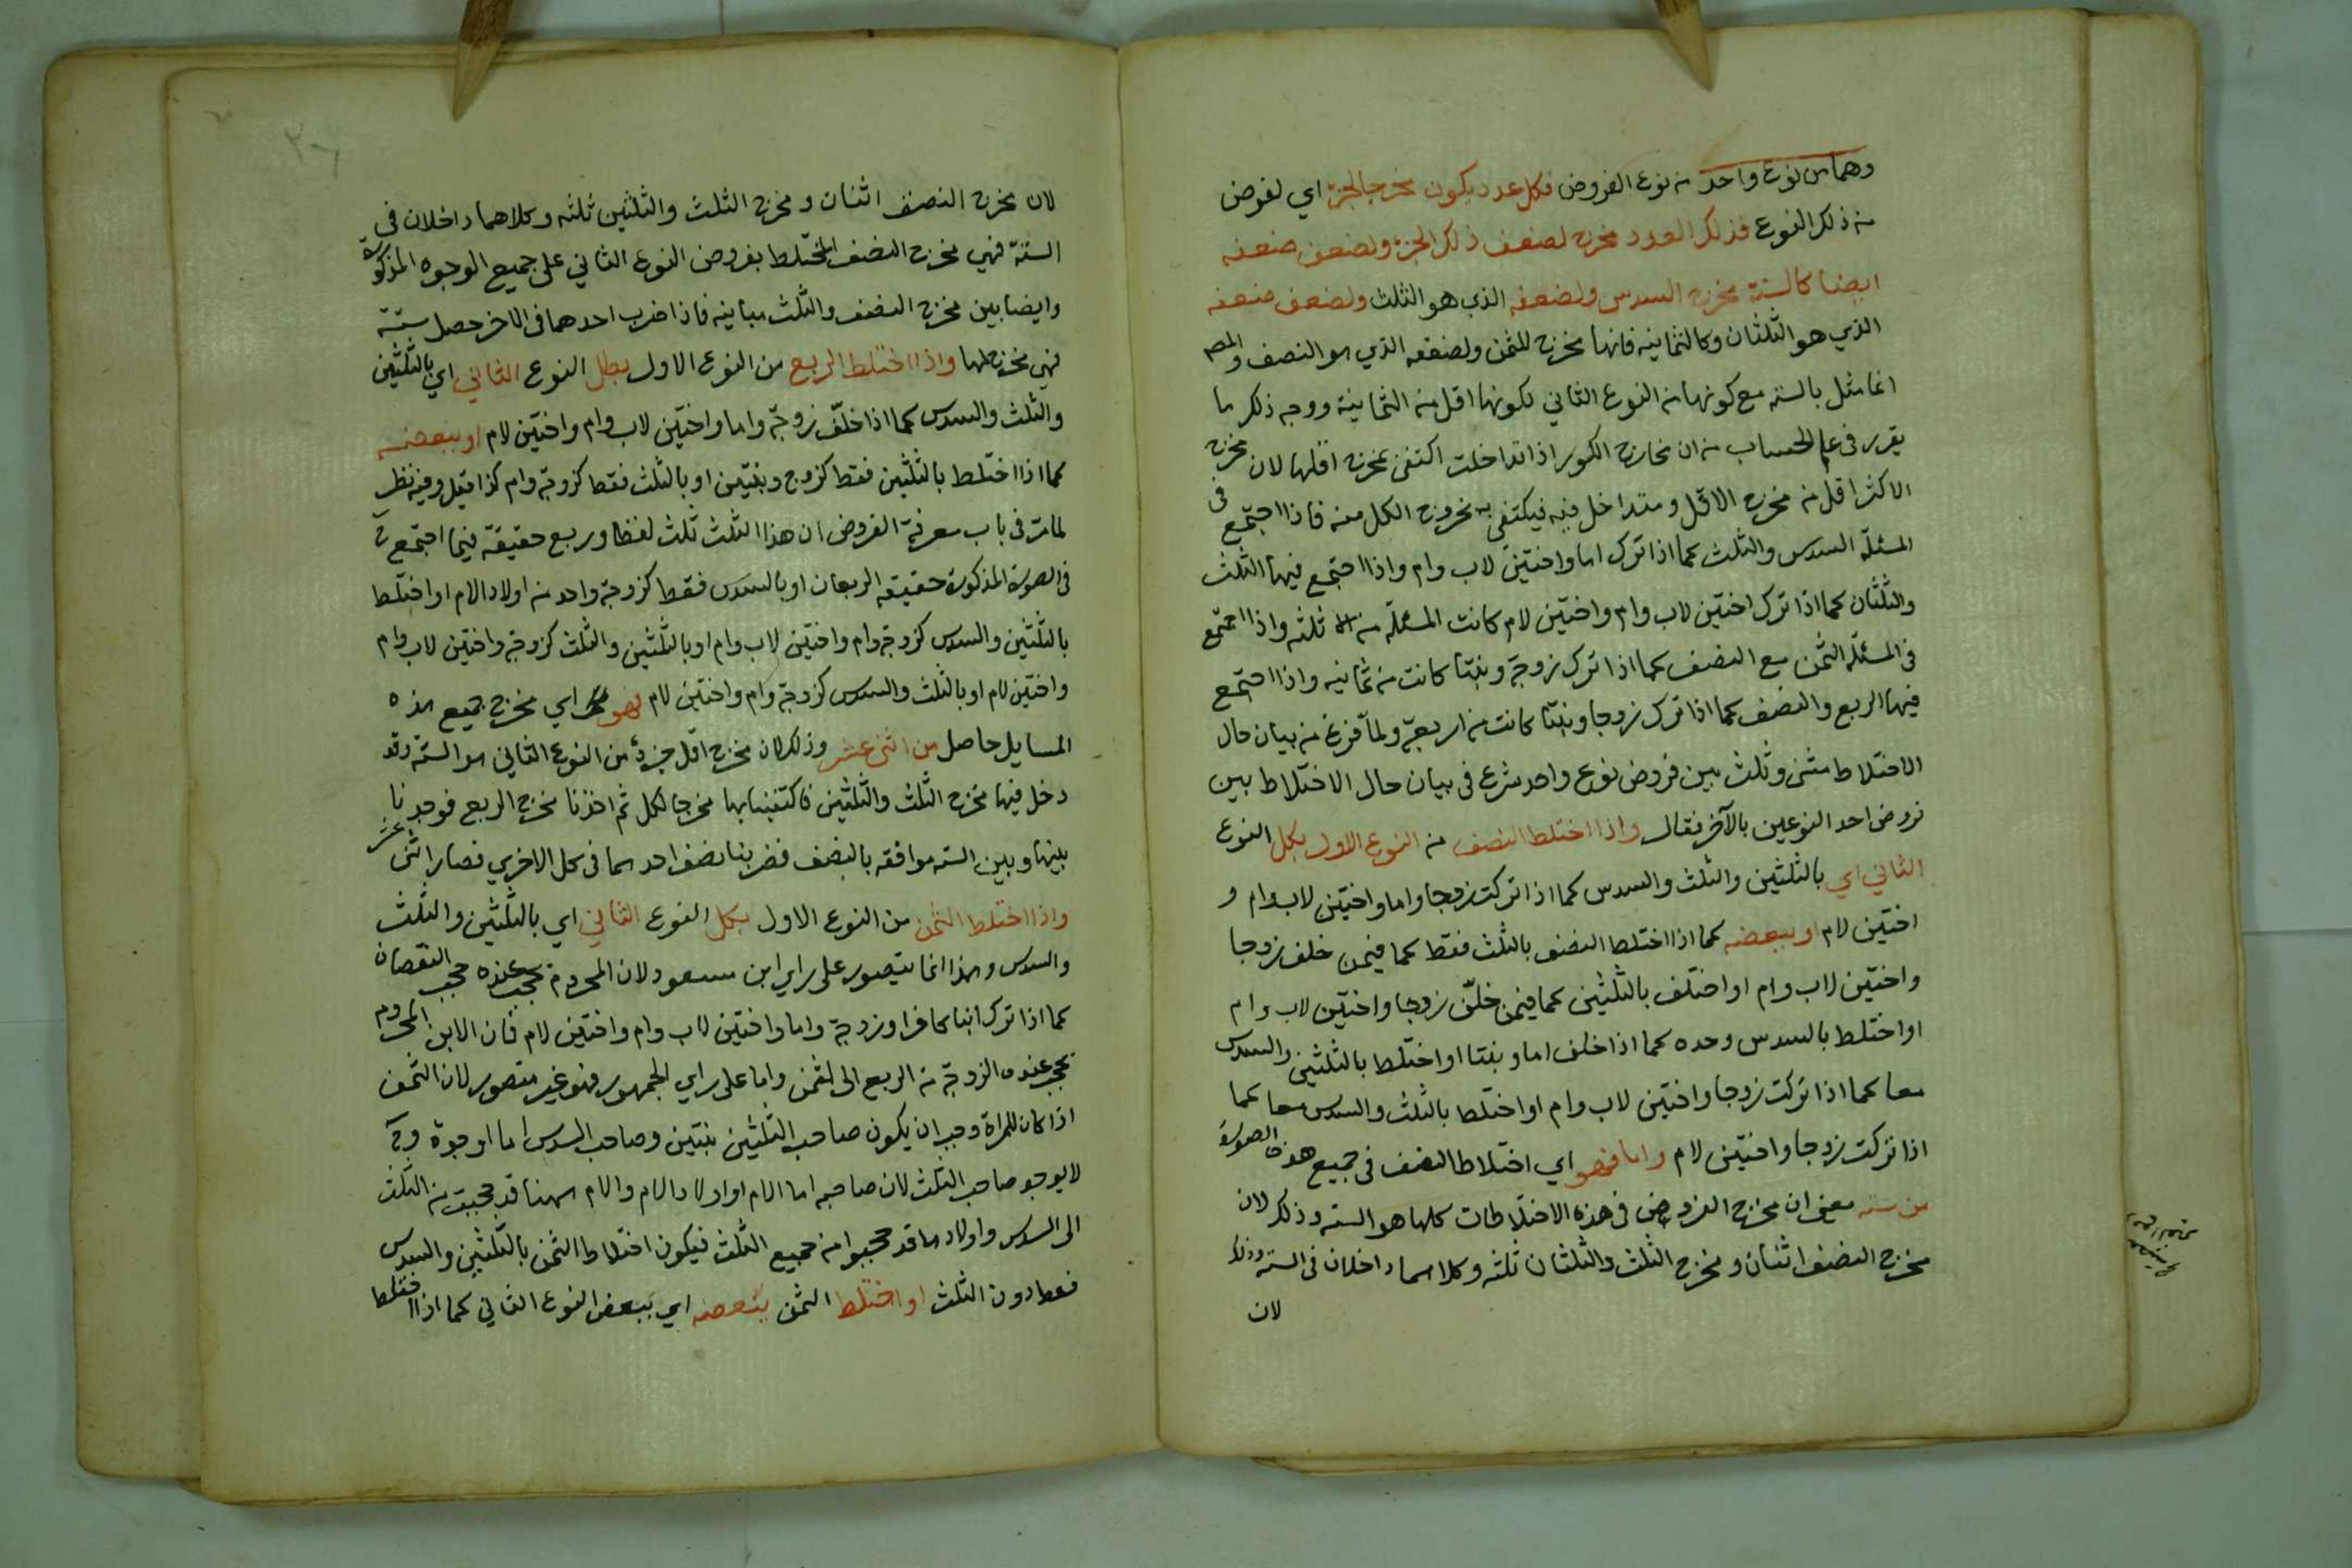 وهما من نوع واحد من نوع الفروض فكل عدد يكون مخرجا لجزء اي لفرض
من ذلك النوع فذلك العدد مخرج لضعف ذلك الجزء ولضعف ضعفه
ايضا كالستة مخرج السدس ولضعفه الذي هو الثلث ولضعف ضعفه
الذي هو الثلثان وكالثمانيه فانها مخرج للثمن ولضعفه الذي هو النصف والمص
انما مثل بالسته مع كونها من النوع الثاني لكونها اقل من الثمانية ووجه ذلك ما
يقرر في علم الحساب من ان مخارج الكسور اذا تداخلت اكتفى بمخرج اقلها لان مخرج
الاكثر اقل من مخرج الاقل ومتداخل فيه فيكتفي به بخروج الكل منه فاذا اجتمع في
المسئلة السدس والثلث كما اذا ترك اما واختين لاب وام واذا اجتمع فيها الثلث
والثلثان كما اذا ترك اختين لاب وام واختين لام كانت المسئلة من ثلثه واذا اجتمع
في المسئلة الثمن مع النصف كما اذا ترك زوجة وبنتا كانت من ثمانيه واذا اجتمع
فيها الربع والنصف كما اذا ترك زوجا وبنتا كانت من اربعة ولما فرغ من بيان حال
الاختلاط مثنى وثلث بين فروض نوع واحد شرع في بيان حال الاختلاط بين
فروض احد النوعين بالآخر فقال واذا اختلط النصف من النوع الاول بكل النوع
الثاني اي بالثلثين والثلث والسدس كما اذا تركت زوجا واما واختين لاب وام و
اختين لام او ببعضه كما اذا اختلط النصف بالثلث فقط كما فيمن خلف زوجا
واختين لاب وام او اختلف بالثلثين كما فيمن خلّف زوجا واختين لاب وام
او اختلط بالسدس وحده كما اذا خلف اما وبنتا او اختلط بالثلثين والسدس
معا كما اذا تركت زوجا واختين لاب وام او اختلط بالثلث والسدس معا كما
اذا تركت زوجا واختين لام واما فهو اي اختلاط النصف في جميع هذه الصورة
من سته معنى ان مخرج الفروض في هذه الاختلاطات كلها هو السته وذلك لان
مخرج النصف اثنان ومخرج الثلث والثلثان ثلثه وكلاهما داخلان في السته وذلك
لان
لان مخرج النصف اثنان ومخرج الثلث والثلثين ثلثه وكلاهما داخلان في
الستة فهي مخرج النصف المختلط بفروض النوع الثاني على جميع الوجوه المذكورة
وايضا بين مخرج النصف والثلث مباينه فاذا ضرب احدهما في الاخر حصل ستة
فهي مخرجهما واذا اختلط الربع من النوع الاول بكل النوع الثاني اي بالثلثين
والثلث والسدس كما اذا خلّف زوجة واما واختين لاب وام واختين لام او ببعضه
كما اذا اختلط بالثلثين فقط كزوج وبنتين او بالثلث فقط كزوجة وام كذا قيل وفيه نظر
لما مر في باب معرفة الفروض ان هذا الثلث ثلث لفظا وربع حقيقة فيما اجتمع ح
في الصورة المذكورة حقيقه الربعان او بالسدس فقط كزوجة وواحد من اولاد الام او اختلط
بالثلثين والسدس كزوجة وام واختين لاب وام او بالثلثين والثلث كزوجة واختين لاب وام
واختين لام او بالثلث والسدس كزوجة وام واختين لام فهو اي مخرج جميع هذه
المسايل حاصل من اثنى عشر وذلك لان مخرج اقل جزء من النوع الثاني هو الستة وقد
دخل فيها مخرج الثلث والثلثين فاكتفينا بها مخرجا لكل ثم اخذنا مخرج الربع فوجدنا
بينها وبين السته موافقه بالنصف فضربنا نصف احدهما في كل الاخرى فصار اثنى عشر
واذا اختلط الثمن من النوع الاول بكل النوع الثاني اي بالثلثين والثلث
والسدس وهذا انما يتصور على راي ابن مسعود لان المحروم يحجب عنده حجب النقصان
كما اذا ترك ابنا كافرا وزوجة واما واختين لاب وام واختين لام فان الابن المحروم
يحجب عنده الزوجة من الربع الى الثمن واما على راي الجمهور فهو غير متصور لان الثمن
اذا كان للمراة وجب ان يكون صاحب الثلثين بنتين وصاحب السدس اما او جدة وح
لا يوجد صاحب الثلث لان صاحبه اما الام او اولاد الام والام ههنا قد حجبت من الثلث
الى السدس واولادها قد حجبوا من جميع الثلث فيكون اختلاط الثمن بالثلثين والسدس
فقط دون الثلث او اختلط الثمن ببعضه اي ببعض النوع الثاني كما اذا اختلط